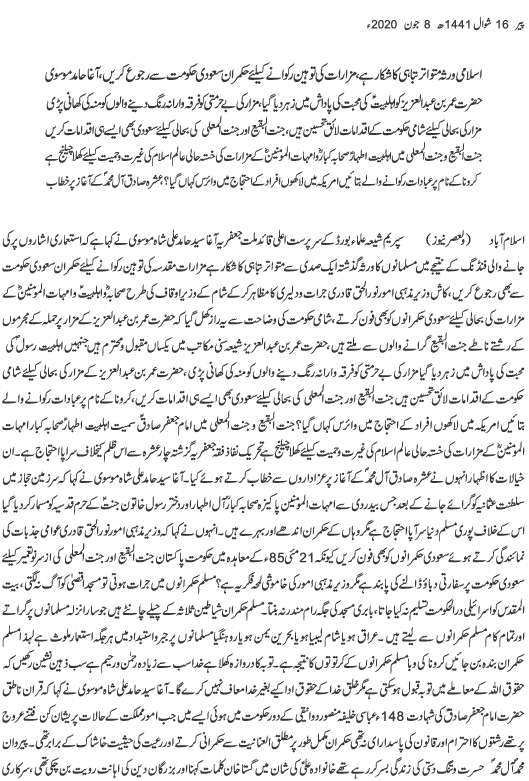 پیر 16 شوال 1441ھ 8 جون 2020ء
اسلامی ورثہ متواتر تباہی کا شکار ہے، مزارات کی توہین رکوانے کیلئے حکمران سعودی حکومت سے رجوع کریں، آغا حامد موسوی
حضرت عمر بن عبدالعزیز کو اہلبیتؑ کی محبت کی پاداش میں زہر دیا گیا، مزار کی بے حرمتی کو فرقہ وارانہ رنگ دینے والوں کو منہ کی کھانی پڑی
مزار کی بحالی کیلئے شامی حکومت کے اقدامات لائق تحسین ہیں، جنت البقیع اور جنت المعلی کی بحالی کیلئے سعودی بھی ایسے ہی اقدامات کریں
جنت البقیع و جنت المعلی میں اہلبیت اطہارؑ صحابہ کبارؓ و امہات المومنینؓ کے مزارات کی خستہ حالی عالم اسلام کی غیرت و حمیت کیلئے کھلا چیلنج ہے
کرونا کے نام پر عبادات رکوانے والے بتائیں امریکہ میں لاکھوں افراد کے احتجاج میں وائرس کہاں گیا؟ عشرہ صادق آل محمدؐ کے آغاز پر خطاب
اسلام آباد (ولعصر نیوز) سپریم شیعہ علماء بورڈ کے سرپرست اعلی قائد ملت جعفریہ آغا سید حامد علی شاہ موسوی نے کہا ہے کہ استعماری اشاروں پر کی
جانے والی فنڈنگ کے نتیجے میں مسلمانوں کا ورثہ گذشتہ ایک صدی سے متواتر تباہی کا شکار ہے مزارات مقدسہ کی توہین رکوانے کیلئے حکمران سعودی حکومت
سے بھی رجوع کریں، کاش وزیر مذہبی امور نور الحق قادری جرات و دلیری کا مظاہر کر کے شام کے وزیر اوقاف کی طرح صحابہؓ و اہلبیتؑ و امہات المومنینؓ کے
مزارات کی بحالی کیلئے سعودی حکمرانوں کو بھی فون کرتے، شامی حکومت کی وضاحت سے یہ راز کھل گیا کہ حضرت عمر بن عبدالعزیز کے مزار پر حملہ کے مجرموں
کے رشتے ناطے جنت البقیع گرانے والوں سے ملتے ہیں، حضرت عمر بن عبدالعزیز شیعہ سنی مکاتب میں یکساں مقبول و محترم ہیں جنہیں اہلبیت رسولؐ کی
محبت کی پاداش میں زہر دیا گیا مزار کی بے حرمتی کو فرقہ وارانہ رنگ دینے والوں کو منہ کی کھانی پڑی، حضرت عمر بن عبدالعزیز کے مزار کی بحالی کیلئے شامی
حکومت کے اقدامات لائق تحسین ہیں جنت البقیع اور جنت المعلی کی بحالی کیلئے سعودی بھی ایسے ہی اقدامات کریں، کرونا کے نام پر عبادات رکوانے والے
بتائیں امریکہ میں لاکھوں افراد کے احتجاج میں وائرس کہاں گیا؟ جنت البقیع و جنت المعلی میں امام جعفر صادقؑ سمیت اہلبیت اطہارؑ صحابہ کبارؓ امہات
المومنینؓ کے مزارات کی خستہ حالی عالم اسلام کی غیرت و حمیت کیلئے کھلا چیلنج ہے تحریک نفاذ فقہ جعفریہ گزشتہ چار عشرہ سے اس ظلم کیخلاف سراپا احتجاج ہے۔ ان
خیالات کا اظہار انہوں نے عشرہ صادق آل محمدؐ کے آغاز پر عزاداروں سے خطاب کرتے ہوئے کیا۔ آغا سید حامد علی شاہ موسوی نے کہا کہ سرزمین حجاز میں
سلطنت عثمانیہ کو گرائے جانے کے بعد جس بیدردی سے امہات المومنین پاکیزہ صحابہ کبار آل اطہار اور دختر رسول خاتون جنتؑ کے حرم قدسیہ کو مسمار کر دیا گیا
اس کے خلاف پوری مسلم دنیا سراپا احتجاج ہے مگر وہاں کے حکمران اندھے اور بہرے ہیں۔ انہوں نے کہا کہ وزیر مذہبی امور نور الحق قادری عوامی جذبات کی
نمائندگی کرتے ہوئے سعودی حکمرانوں کو بھی فون کریں کیونکہ 21 مئی 85ء کے معاہدہ میں حکومت پاکستان جنت البقیع اور جنت المعلی کی از سر نو تعمیر کیلئے
سعودی حکومت پر سفارتی دباؤ ڈالنے کی پابند ہے مگر وزیر مذہبی امور کی خاموشی لمحہ فکریہ ہے؟ مسلم حکمرانوں میں جرات ہوتی تو مسجد اقصیٰ کو آگ نہ لگتی، بیت
المقدس کو اسرائیلی دارالحکومت تسلیم نہ کیا جاتا، بابری مسجد کی جگہ رام مندر نہ بنتا۔ مسلم حکمران شیاطین ثلاثہ کے چیلے چانٹے ہیں جو سارا نزلہ مسلمانوں پر گراتے
اور تمام کام مسلم حکمرانوں سے لیتے ہیں۔ عراق ہو یا شام لیبیا ہو یا بحرین یمن ہو یا روہنگیا مسلمانوں پر جبر و استبداد میں ہر جگہ استعمار ملوث ہے لہذا مسلم
حکمران بندہ بن جائیں کرونا کی وبا مسلم حکمرانوں کے کرتوتوں کا نتیجہ ہے۔ توبہ کا دروازہ کھلا ہے خدا سب سے زیادہ رحمن و رحیم ہے سب ذہن نشین رکھیں کہ
حقوق اللہ کے معاملے میں توبہ قبول ہو سکتی ہے مگر خلق خدا کے حقوق ادا کیے بغیر خدا معاف نہیں کرے گا۔ آغا سید حامد علی شاہ موسوی نے کہا کہ قران ناطق
حضرت امام جعفر صادقؑ کی شہادت 148ھ عباسی خلیفہ منصور دوانیقی کے دور حکومت میں ہوئی ایسے میں جب امور مملکت کے حالات پریشان کن فتنے عروج
پر تھے رشتوں کا احترام اور قانون کی پاسداری نہ تھی حکمران مکمل طور پر مطلق العنانیت سے حکمرانی کرتے اور رعیت کی حیثیت خاشاک کے برابر تھی۔ پیروان
محمدؐ و آل محمدؐ حسرت و تنگ دستی کی زندگی بسر کر رہے تھے خانوادہ علیؑ کی شان میں گستاخانہ کلمات کہنا اور بزرگان دین کی اہانت روایت بن چکی تھی، سرکاری